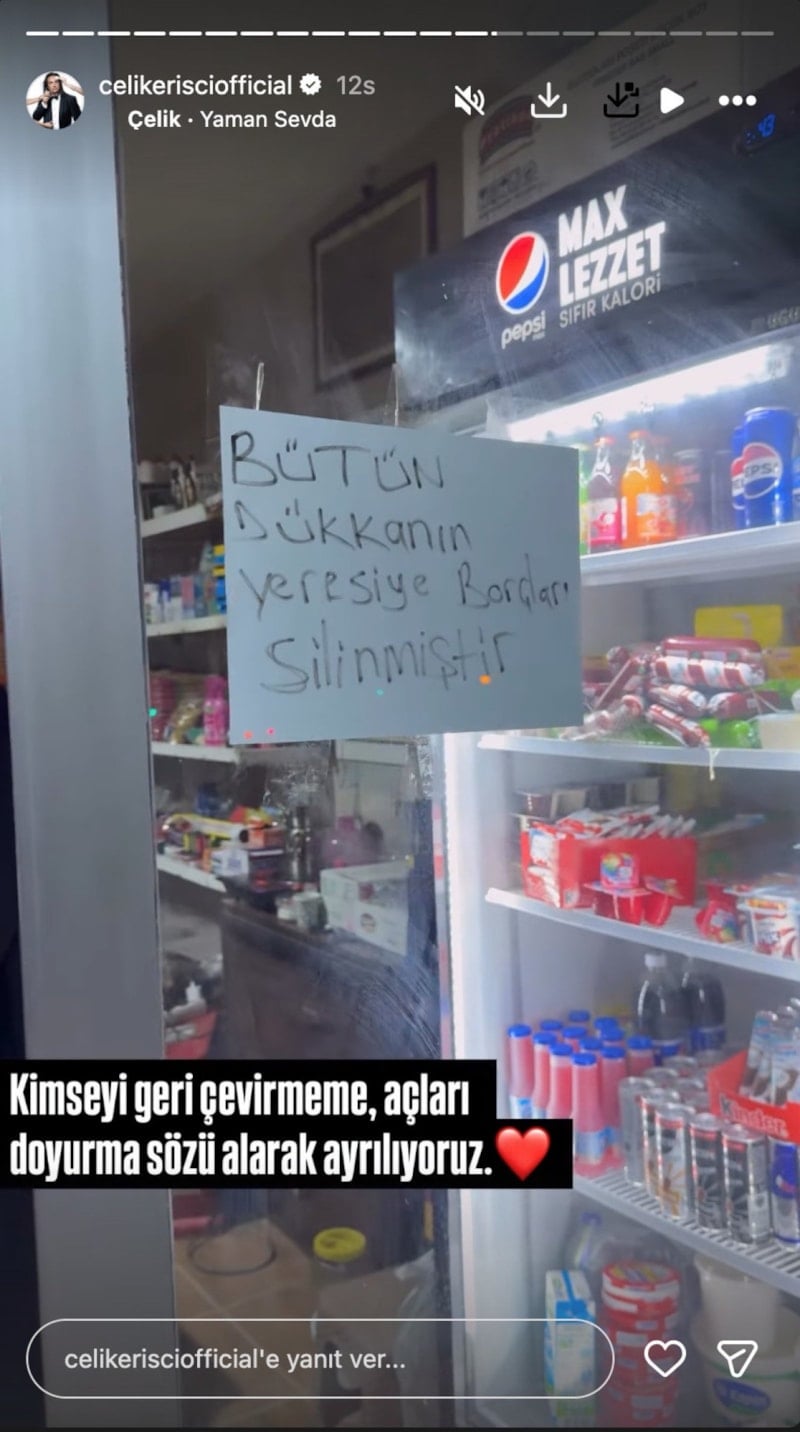 celikerisciofficial 12s
Çelik · Yaman Sevda
43
MAX
LEZZET
SIFIR KALORİ
pepsi
BÜTÜN
DÜKKANIN
Yeresiye Borçları
Silinmiştir
PEPSI
Kinder
Kimseyi geri çevirmeme, açları
doyurma sözü alarak ayrılıyoruz.❤️
celikerisciofficial'e yanıt ver...